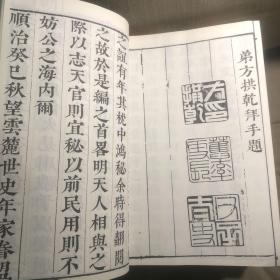 弟方拱乾拜手題
之誼有年其枕中鴻秘余時得翻閱
之故於是編之首畧明天人相與之
際以志天官則宜秘以前民用則不
妨公之海内爾
順治癸巳秋望雲麓世史年家眷盟